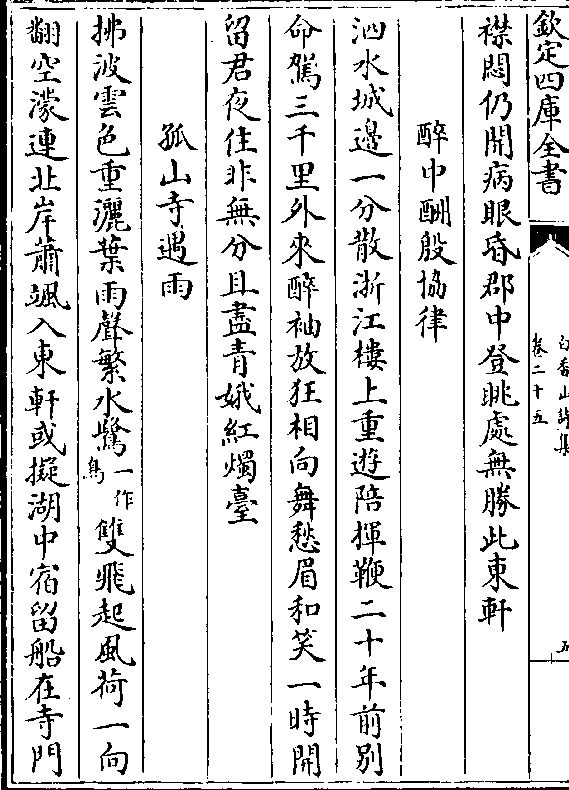 欽定四庫全書
白香山詩集
卷二十五
五
襟悶仍開病眼昏郡中登眺處無勝此東軒
醉中酬殷協律
泗水城邊一分散浙江樓上重遊陪揮鞭二十年前別
命駕三千里外來醉袖放狂相向舞愁眉和笑一時開
留君夜住非無分且盡青娥紅燭臺
孤山寺遇雨
拂波雲色重灑葉雨聲繁水鷺一作鳥雙飛起風荷一向
翻空濛連北岸蕭颯入東軒或擬湖中宿留船在寺門